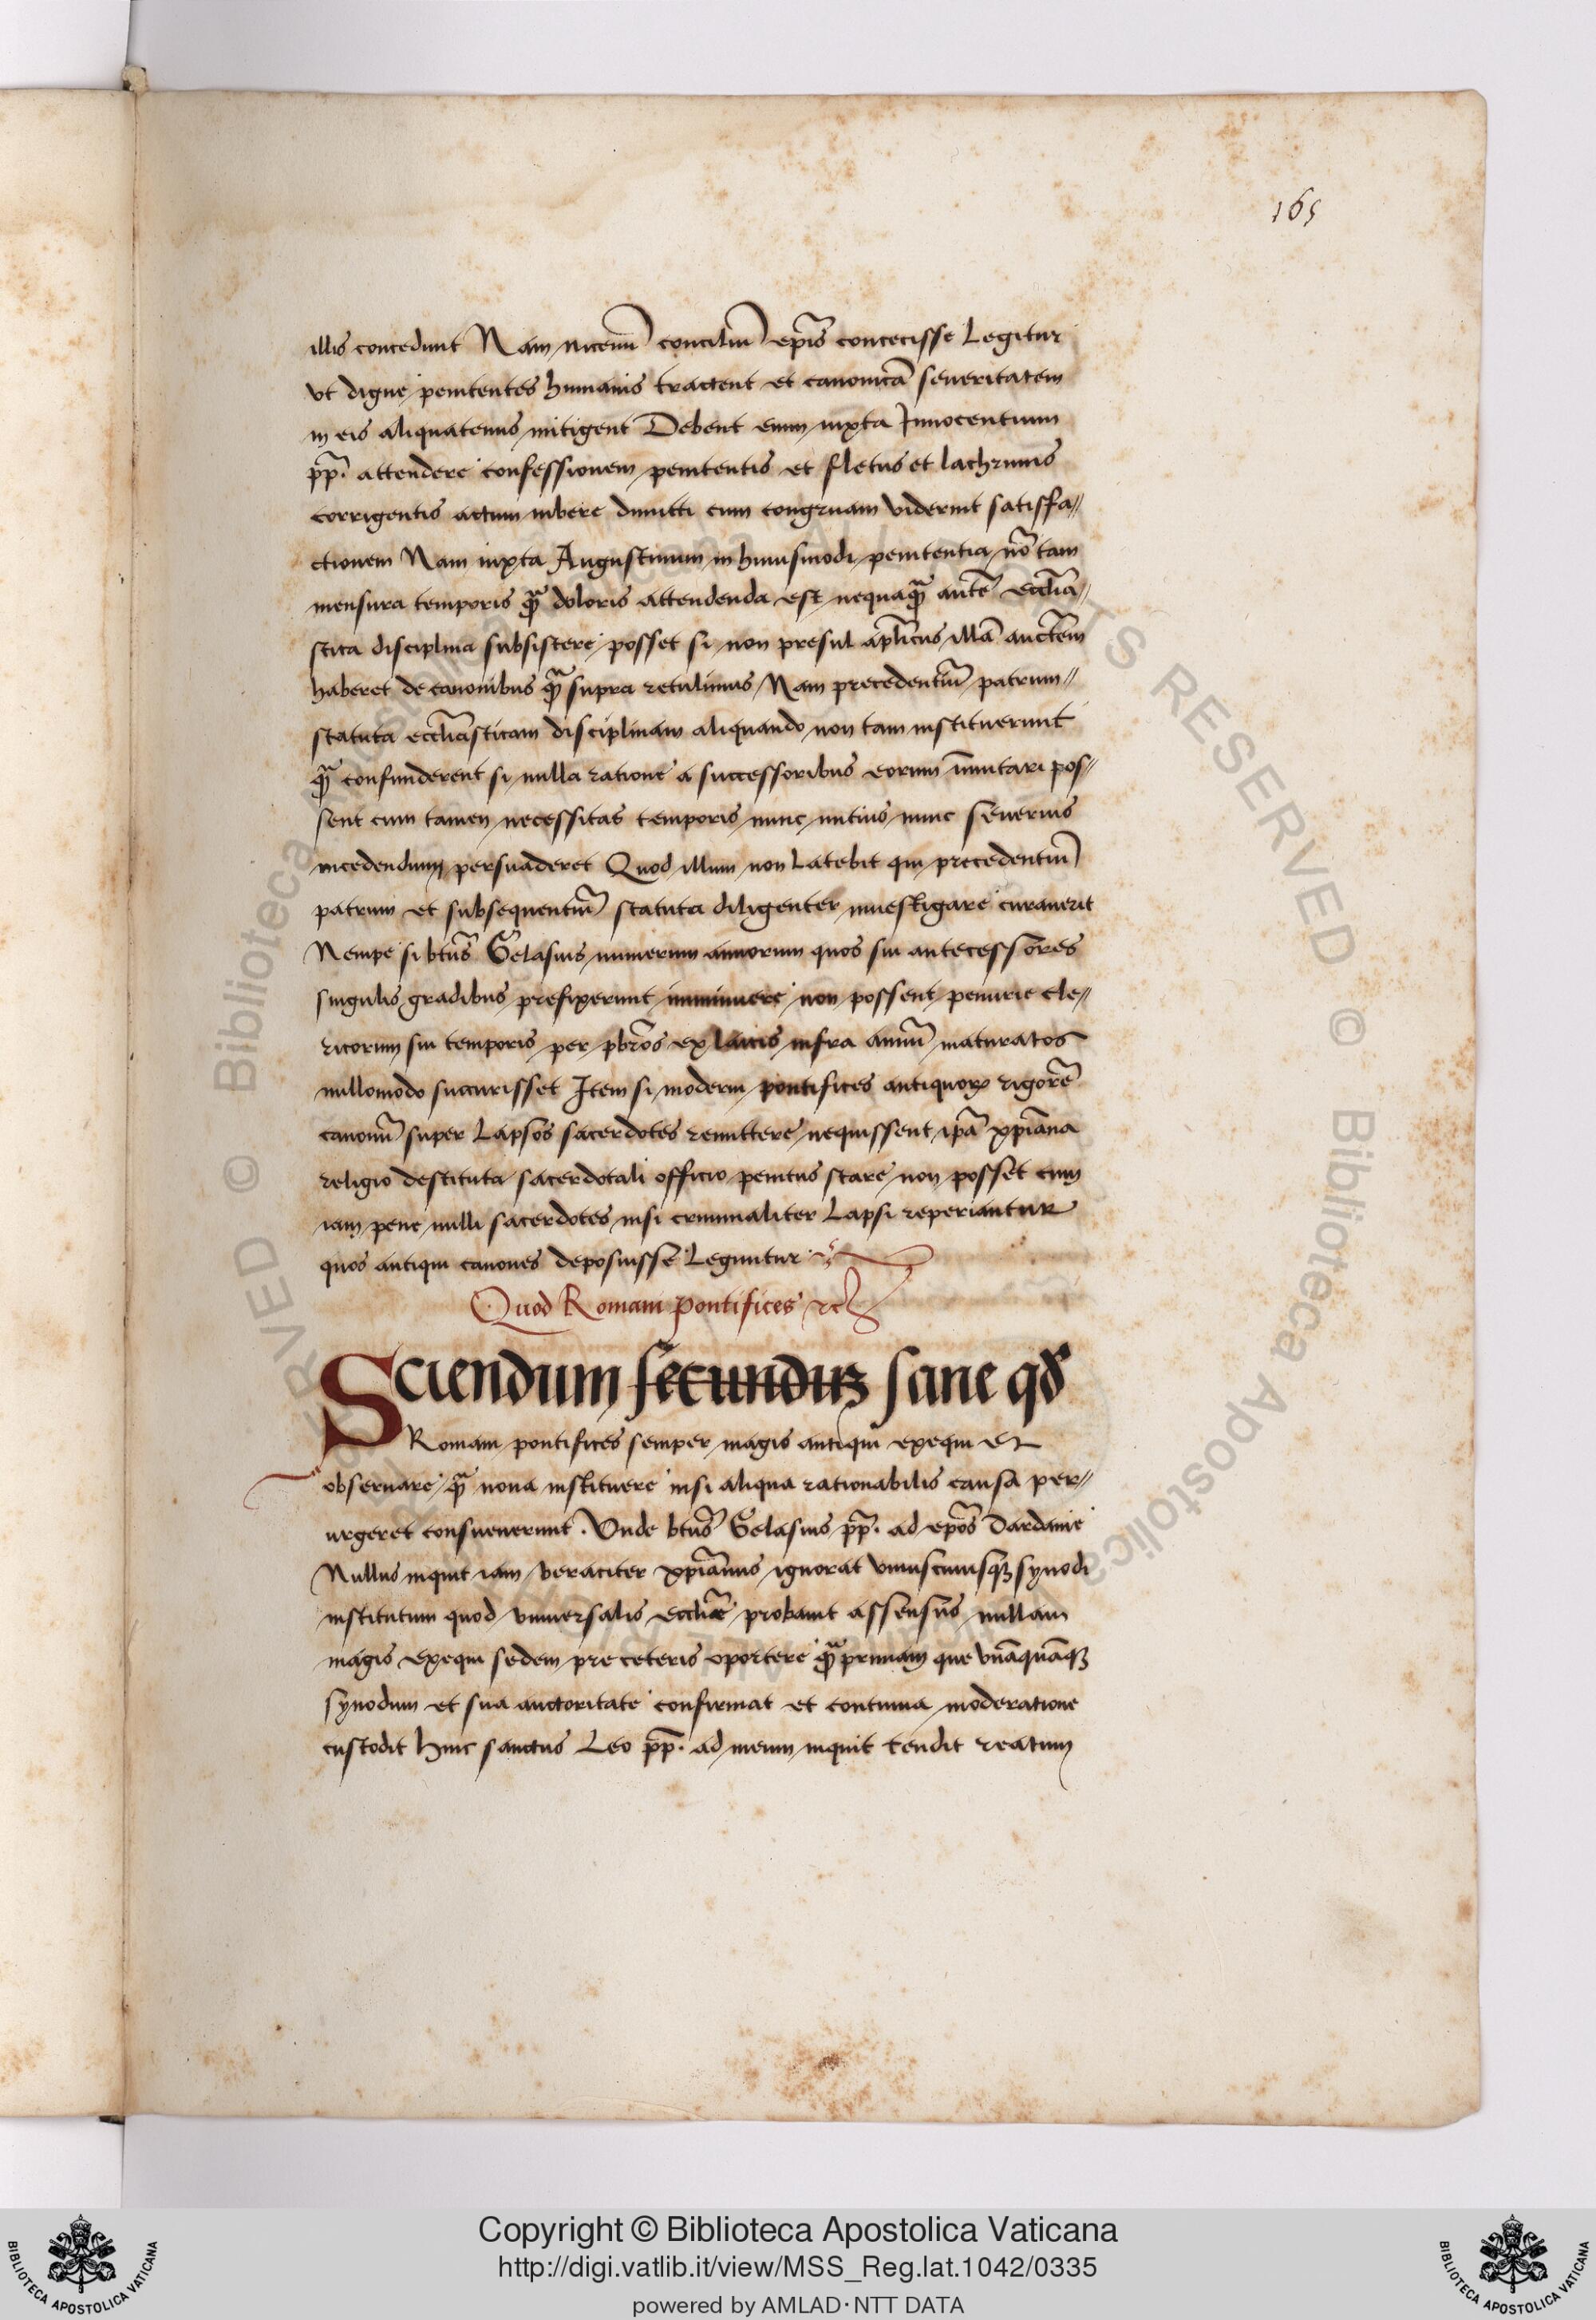 165
illis concedunt Nam nicenū conciliū ep̄is concecisse Legitur
vt digne penitentes humanis tractent et canonicā seueritatem
in eis aliquatenus mitigent Debent enim iuxta Innocentium
pp̄. attendere confessionem penitentis et fletus et lachrimis
corrigentis actum iubere dimitti cum congruam viderint satisfa//
ctionem Nam iuxta Augustinum in huiusmodi penitentia nō tam
mensura temporis q̄ doloris attendenda est nequaq̄ autē eccl̄ia//
stica disciplina subsistere posset si non presul apl̄icus illā auctēm
haberet de canonibus q̄ supra retulimus Nam precedentiū patrum//
statuta eccl̄iasticam disciplinam aliquando non tam instituerunt
q̄ confunderent si nulla ratione a successoribus eorum īmutari pos//
sent cum tamen necessitas temporis nunc mitius nunc seuerius
incedendum persuaderet Quod illum non Latebit qui precedentiū
patrum et subsequentiū statuta diligenter inuestigare curauerit
Nempe si btūs Gelasius numerum annorum quos sui antecessores
singulis gradibus prefixerunt imminuere non possent penurie cle//
ricorum sui temporis per pbr̄os ex laicis infra annū maturatos
nullomodo succurisset Item si moderni pontifices antiquoꝝ rigorē
canonū super Lapsos sacerdotes remittere nequissent ip̄a xp̄iana
religio destituta sacerdotali officio penitus stare non posset cum
iam pene nulli sacerdotes nisi criminaliter Lapsi reperiantur
quos antiqui canones deposuisse Leguntur
Quod Romani pontifices
Sciendum secunduꝫ sane qd̄
Romani pontifices semper magis antiqui exequi et
obseruare q̄ noua instituere nisi aliqua rationabilis causa per//
urgeret consueuerunt. Vnde btūs Gelasius pp̄. ad ep̄os Dardanie
Nullus inquit iam veraciter xp̄ianus ignorat vniuscuiusqꝫ synodi
institutum quod vniuersalis eccl̄ie probauit assensus nullam
magis exequi sedem pre ceteris oportere q̄ primam que vnāquāqꝫ
synodum et sua auctoritate confirmat et continua moderatione
custodit hinc sanctus Leo pp̄. ad meum inquit tendit reatum
© Biblioteca Apostolica Vaticana
RIGHTS RESERVED
Copyright © Biblioteca Apostolica Vaticana
http://digi.vatlib.it/view/MSS_Reg.lat.1042/0335
powered by AMLAD·NTT DATA
BIBLIOTECA APOSTOLICA VATICANA
BIBLIOTECA APOSTOLICA VATICANA